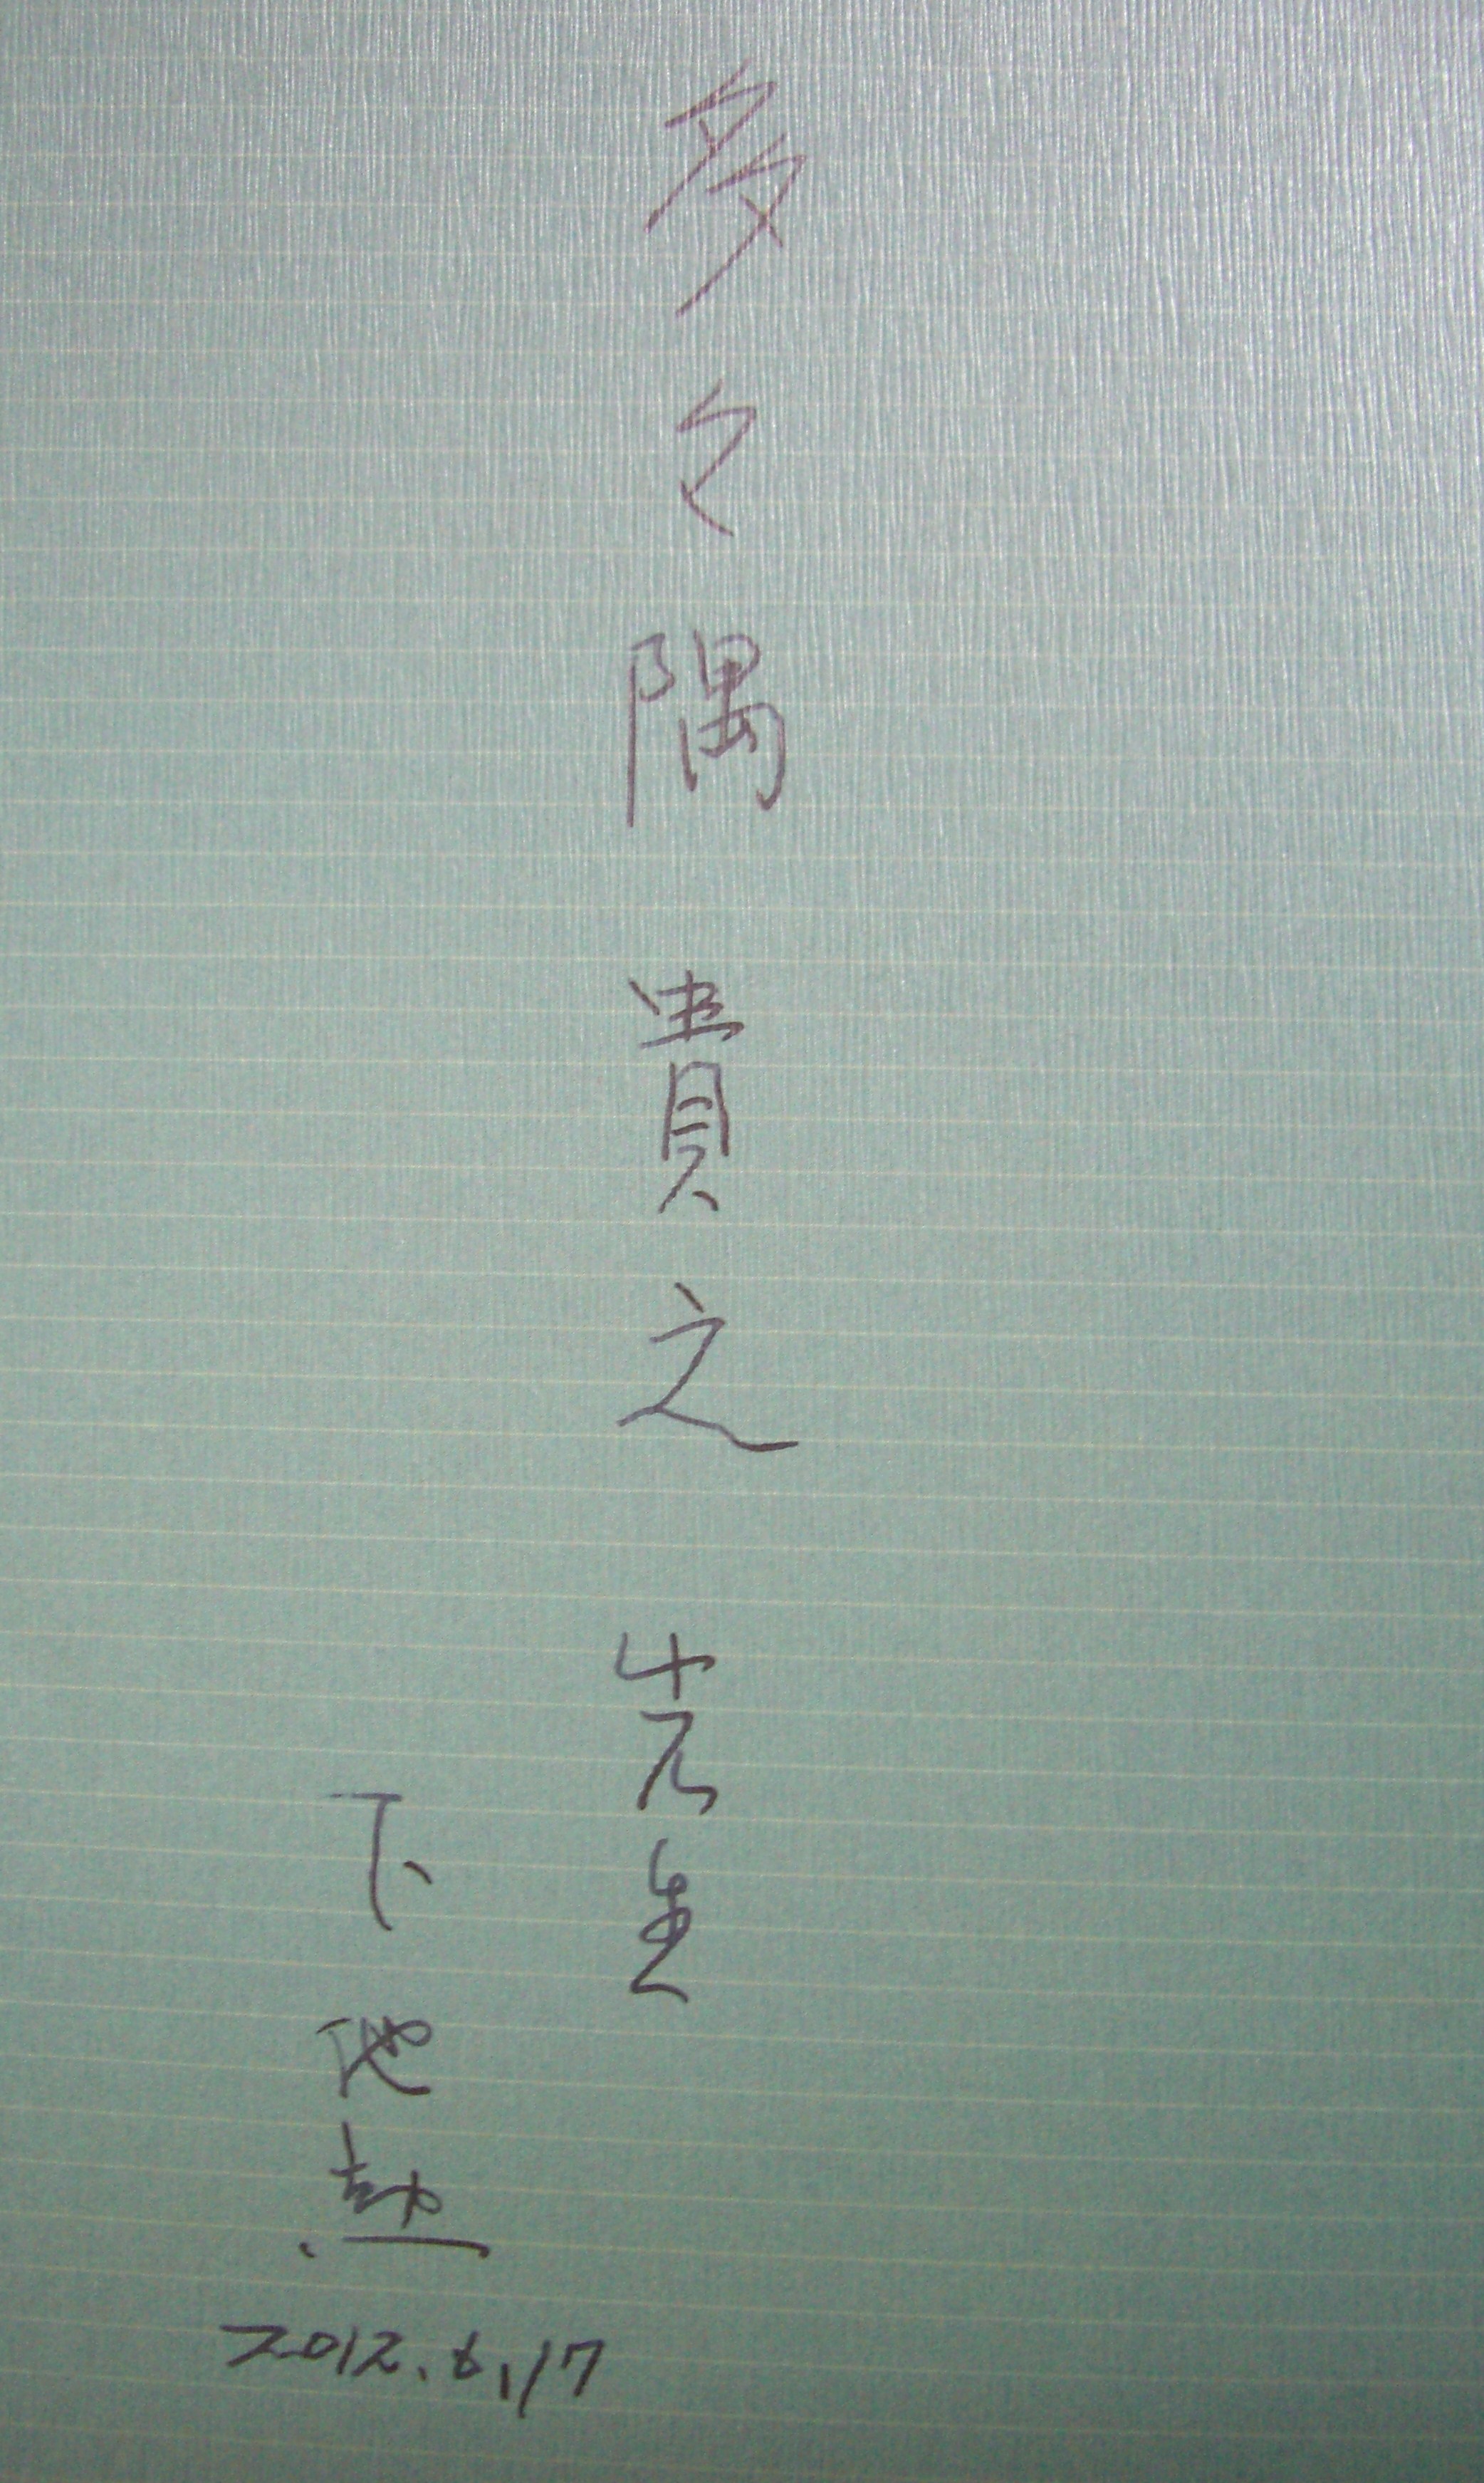 多々隅貴之 先生
下地 勲
2012.6.17